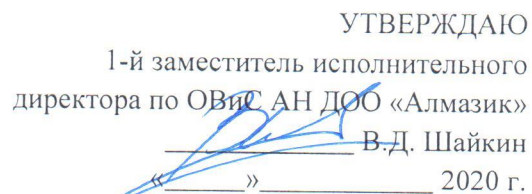 УТВЕРЖДАЮ
1-й заместитель исполнительного
директора по ОВиС АН ДОО «Алмазик»
_________________ В.Д. Шайкин
«_______»________________ 2020 г.